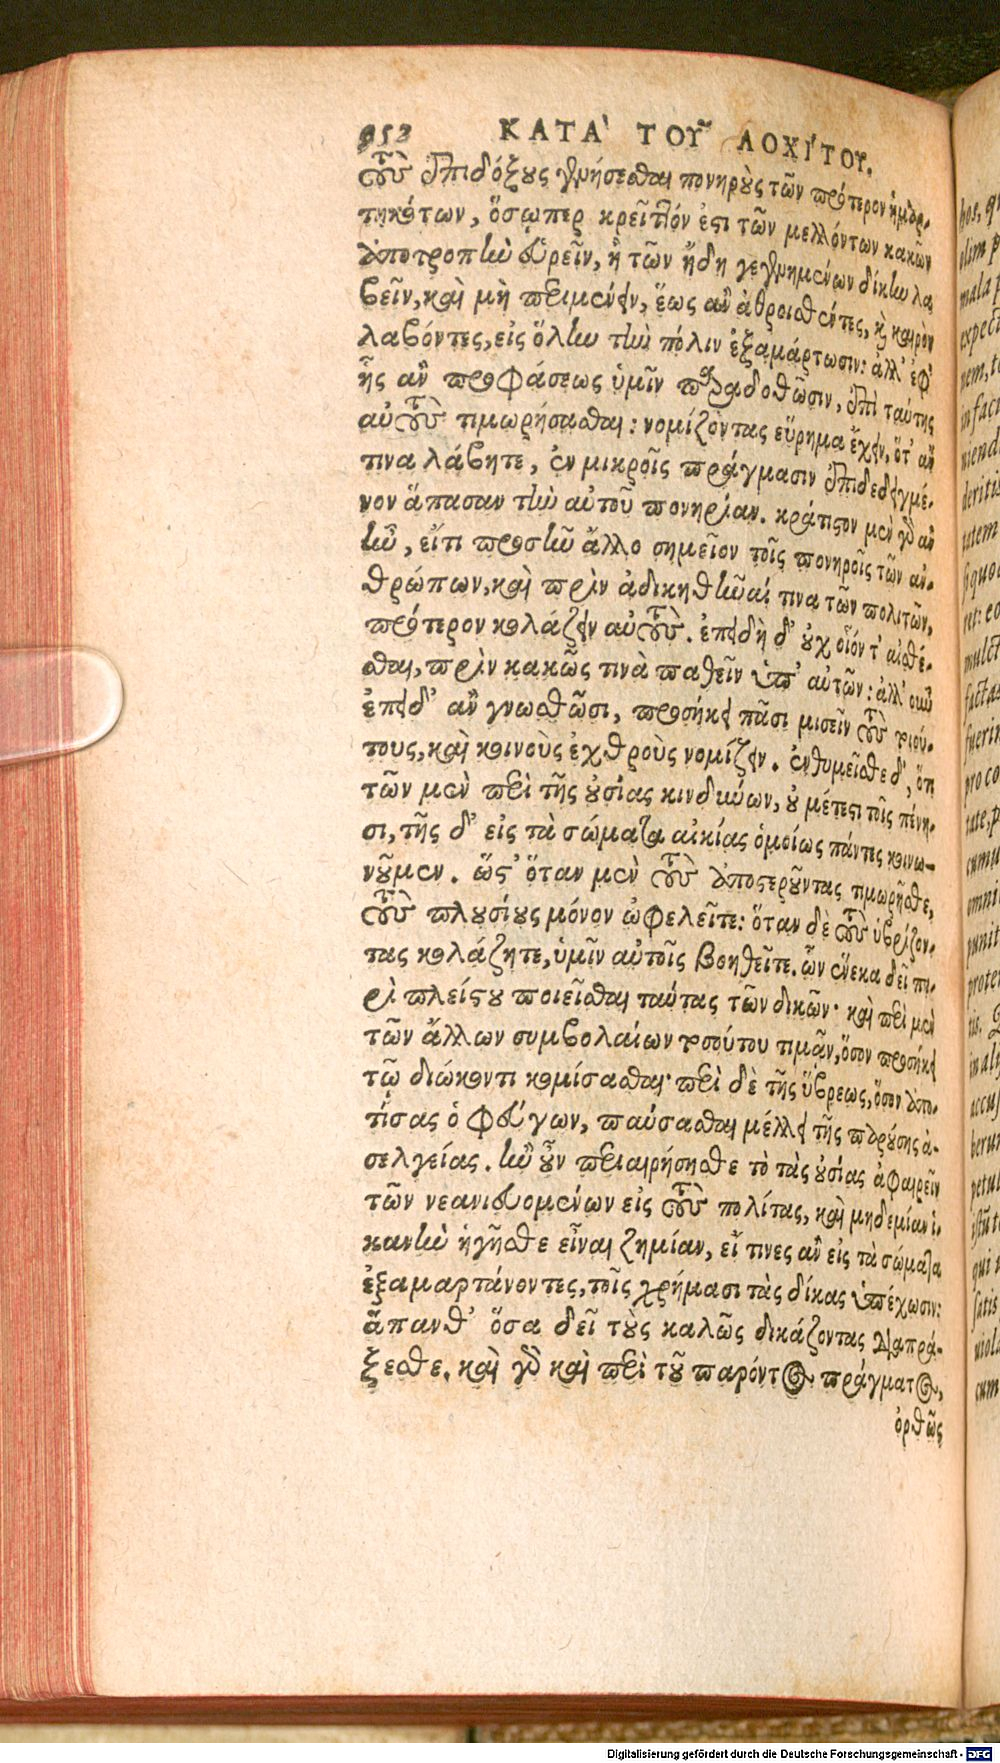 952 ΚΑΤΑ ΤΟΥ͂ ΛΟΧΊΤΟΥ.
τοὺς ἐπιδόξους γενήσεσθαι πονηροὺς τῶν πρότερον ἡμαρ-
τηκότων, ὅσῳπερ κρεῖττόν ἐστι τῶν μελλόντων κακῶν
ἀποτροπὴν εὑρεῖν, ἢ τῶν ἤδη γεγενημένων δίκην λα
βεῖν, καὶ μὴ περιμένειν, ἕως ἂν ἀθροισθέντες, καὶ καιρὸν
λαβόντες, εἰς ὅλην τὴν πόλιν ἐξαμάρτωσιν: ἀλλ' ἐφ'
ἧς ἂν προφάσεως ὑμῖν παραδοθῶσιν, ἐπὶ ταύτης
αὐτοὺς τιμωρήσασθαι: νομίζοντας εὕρημα ἔχειν, ὅτ' ἄν
τινα λάβητε, ἐν μικροῖς πράγμασιν ἐπιδεδειγμέ-
νον ἅπασαν τὴν αὑτοῦ πονηρίαν. κράτιστον μὲν γὰρ ἂν
ἦν, εἴ τι προσῆν ἄλλο σημεῖον τοῖς πονηροῖς τῶν ἀν-
θρώπων, καὶ πρὶν ἀδικηθῆναί τινα τῶν πολιτῶν,
πρότερον κολάζειν αὐτούς. ἐπειδὴ δ' οὐχ οἷόν τ' αἰσθέ-
σθαι, πρὶν κακῶς τινὰ παθεῖν ὑπ' αὐτῶν: ἀλλ' οὖν
ἐπειδ' ἂν γνωσθῶσι, προσήκει πᾶσι μισεῖν τοὺς τοιού-
τους, καὶ κοινοὺς ἐχθροὺς νομίζειν. ἐνθυμεῖσθε δ', ὅτι
τῶν μὲν περὶ τῆς οὐσίας κινδύνων, οὐ μέτεστι τοῖς πένη-
σι, τῆς δ' εἰς τὰ σώματα αἰκίας ὁμοίως πάντες κοινω-
νοῦμεν. ὥστ' ὅταν μὲν τοὺς ἀποστεροῦντας τιμωρῆσθε,
τοὺς πλουσίους μόνον ὠφελεῖτε: ὅταν δὲ τοὺς ὑβρίζον-
τας κολάζητε, ὑμῖν αὐτοῖς βοηθεῖτε. ὧν ἕνεκα δεῖ πε-
ρὶ πλείστου ποιεῖσθαι ταύτας τῶν δικῶν· καὶ περὶ μὲν
τῶν ἄλλων συμβολαίων τοσούτου τιμᾶν, ὅσον προσήκει
τῷ διώκοντι κομίσασθαι· περὶ δὲ τῆς ὕβρεως, ὅσον ἀπο-
τίσας ὁ φεύγων, παύσασθαι μέλλει τῆς παρούσης ἀ-
σελγείας. ἢν οὖν περιαιρήσησθε τὸ τὰς οὐσίας ἀφαιρεῖν
τῶν νεανιευομένων εἰς τοὺς πολίτας, καὶ μηδεμίαν ἱ-
κανὴν ἡγῆσθε εἶναι ζημίαν, εἴ τινες ἂν εἰς τὰ σώματα
ἐξαμαρτάνοντες, τοῖς χρήμασι τὰς δίκας ὑπέχωσιν:
ἅπανθ' ὅσα δεῖ τοὺς καλῶς δικάζοντας διαπρά-
ξεσθε. καὶ γὰρ καὶ περὶ τοῦ παρόντος πράγματος,
ὀρθῶς
Digitalisierung gefördert durch die Deutsche Forschungsgemeinschaft - DFG